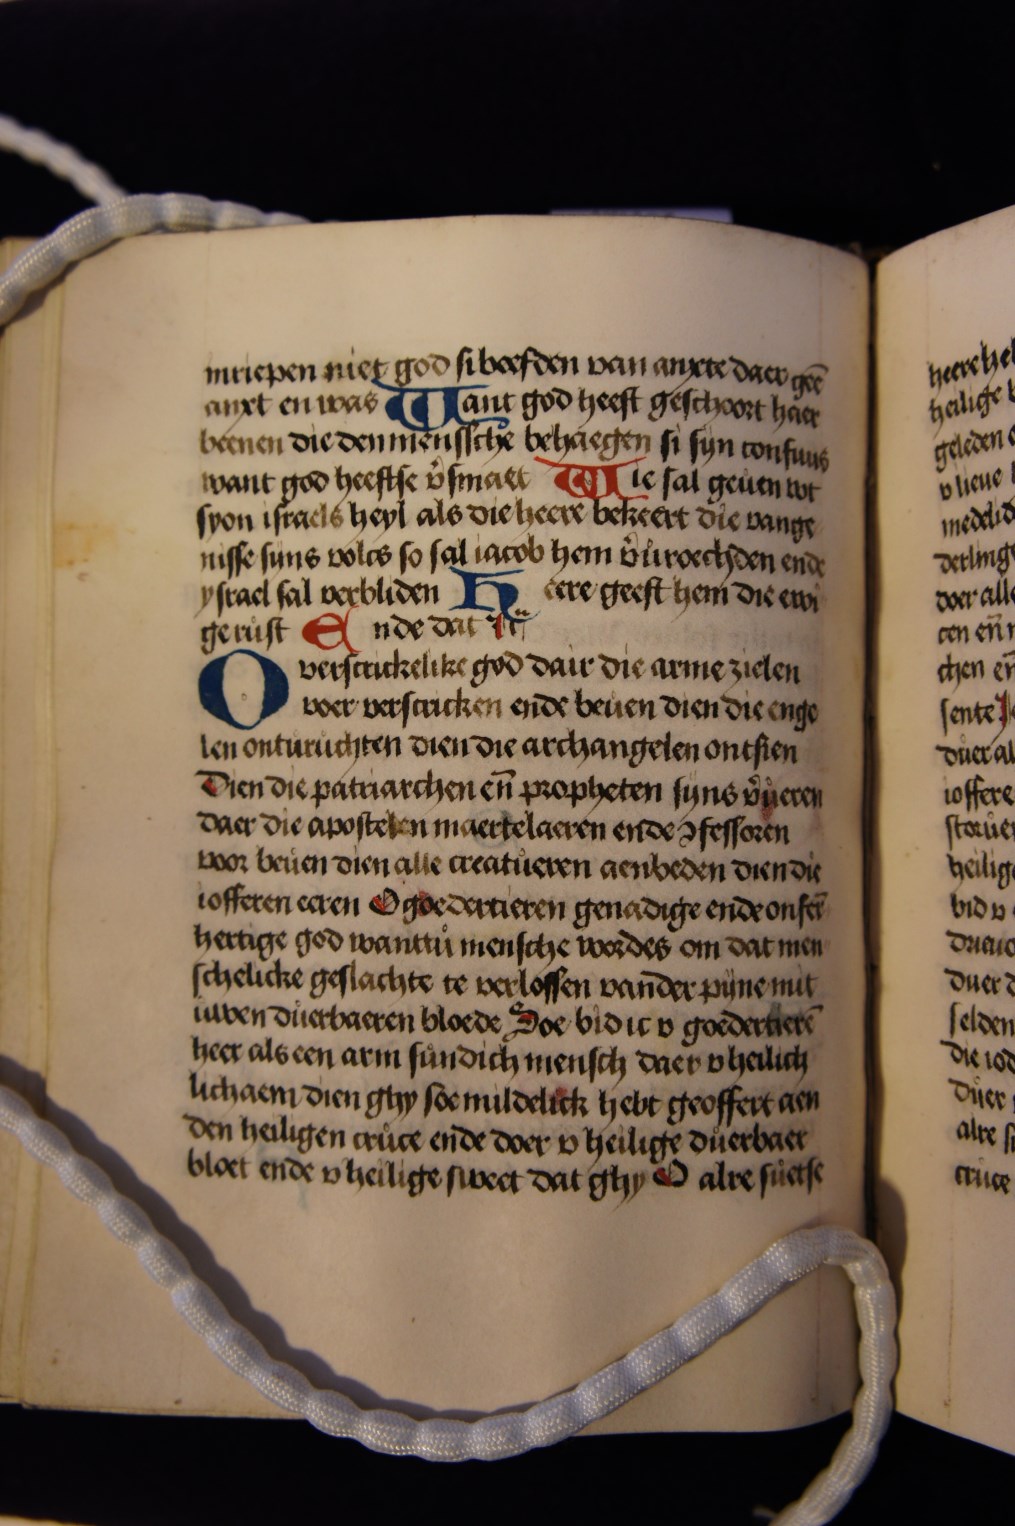 inriepen niet god si beefden van anxte daer geē
anxt en was Want god heeft geschoort haer
beenen die den menssche behaegen si syn confuus
want god heeftse v̉smaet Wie sal geuen wt
syon israels heyl als die heere bekeert die vange
nisse syns volcs so sal iacob hem v̉ůroechden ende
ysrael sal verbliden Heere geeft hem die ewi
ge růst Ende dat
O verscrickelike god dair die arme zielen
voer verscricken ende beůen dien die enge
len onturuchten dien die archangelen ontsien
Dien die patriarchen en̄ propheten syns v̉ůeren
daer die apostelen maertelaeren ende ꝯfessoren
voor beůen dien alle creatůeren aenbeden dien die
iofferen eeren O goedertieren genadige ende onfer̄
hertige god want tů mensche wordes om dat men
schelicke geslachte te verlossen van der pijne mit
uwen důerbaeren bloede Soe bid ic v goedertierē
heer als een arm sůndich mensch daer v heilich
lichaem dien ghy soe mildelick hebt geoffert aen
den heiligen crůce ende doer v heilige důerbaer
bloet ende v heilige sweet dat ghy O alre sůetse
heere
heilige
geleden
v lieue
medelid
derling
voer alle
cen en̄
chen en̄
sente
důer al
ioffere
storůe
heilig
bid v
důer d
selden
die
důer
alre s
cruce